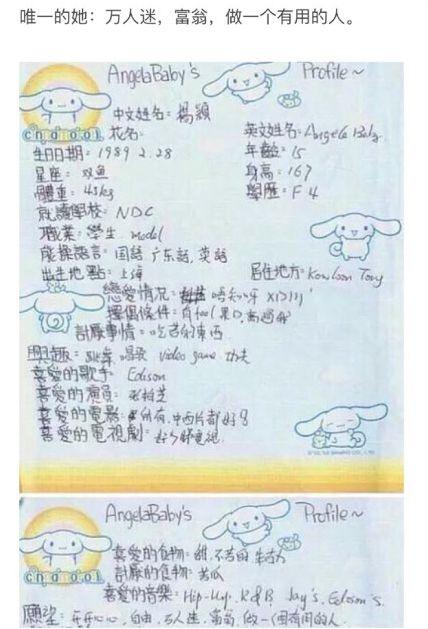 唯一的她：万人迷，富翁，做一个有用的人。
AngelaBaby's Profile～
中文姓名：楊穎
花名： 英文姓名：Angela Baby
生日日期：1989.2.28 年齡：15
星座：双鱼 身高：167
體重：43kg 學歷：F4
就讀學校：NDC
職業：學生．model
能操語言：国語 广东話，英語
出生地點：上海 居住地方：Kowloon Tong
戀愛情况：
擇偶條件：
討厭事情：吃苦的東西
興趣：唱歌 video game
喜愛的歌手：Edison
喜愛的演員：张柏芝
喜愛的電影：所有，中西片都好
喜愛的電視劇：
AngelaBaby's Profile～
喜愛的食物：甜，不苦的
討厭的食物：苦瓜
喜愛的音樂：Hip-Hup, R&B, Jay's, Edison's
願望：开开心心，自由，万人迷，富翁，做一個有用的人